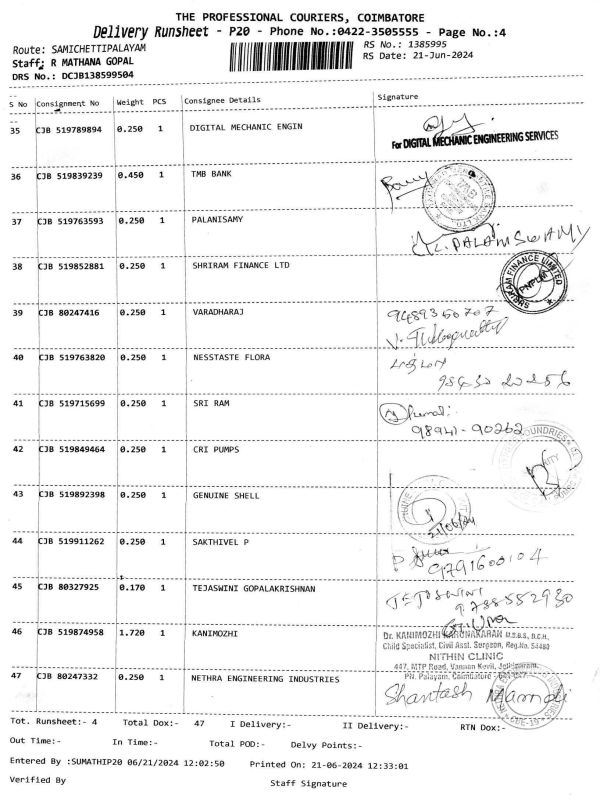 THE PROFESSIONAL COURIERS, COIMBATORE
Delivery Runsheet - P20 - Phone No.:0422-3505555 - Page No.:4
Route: SAMICHETTIPALAYAM
RS No.: 1385995
Staff: R MATHANA GOPAL
RS Date: 21-Jun-2024
DRS No.: DCJB138599504
S No Consignment No Weight PCS Consignee Details Signature
35 CJB 519789894 0.250 1 DIGITAL MECHANIC ENGIN
For DIGITAL MECHANIC ENGINEERING SERVICES
36 CJB 519839239 0.450 1 TMB BANK
37 CJB 519763593 0.250 1 PALANISAMY
PALANISWAMY
38 CJB 519852881 0.250 1 SHRIRAM FINANCE LTD
SHRIRAM FINANCE LIMITED
PNPLM
39 CJB 80247416 0.250 1 VARADHARAJ
9489350707
40 CJB 519763820 0.250 1 NESSTASTE FLORA
41 CJB 519715699 0.250 1 SRI RAM
98941-90262
42 CJB 519849464 0.250 1 CRI PUMPS
43 CJB 519892398 0.250 1 GENUINE SHELL
21/06/24
44 CJB 519911262 0.250 1 SAKTHIVEL P
9791600104
45 CJB 80327925 0.170 1 TEJASWINI GOPALAKRISHNAN
46 CJB 519874958 1.720 1 KANIMOZHI
Dr. KANIMOZHI KARUNAKARAN M.B.B.S., D.C.H.,
Child Specialist, Civil Asst. Surgeon, Reg.No. 55480
NITHIN CLINIC
447, MTP Road, Vannan Kovil, Jothipuram,
PN. Palayam, Coimbatore
47 CJB 80247332 0.250 1 NETHRA ENGINEERING INDUSTRIES
Tot. Runsheet:- 4 Total Dox:- 47 I Delivery:- II Delivery:- RTN Dox:-
Out Time:- In Time:- Total POD:- Delvy Points:-
Entered By :SUMATHIP20 06/21/2024 12:02:50 Printed On: 21-06-2024 12:33:01
Verified By Staff Signature